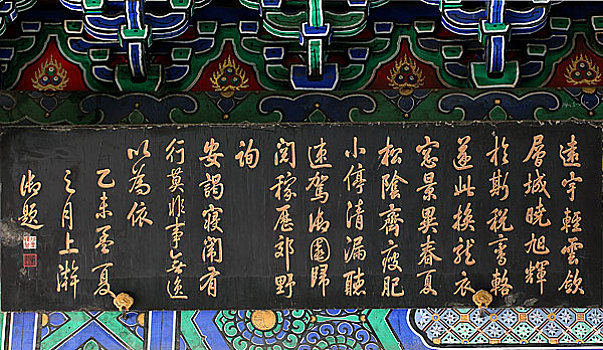 遠宇輕雲斂
層城曉旭輝
於斯稅輅
遂此換龍衣
窓景異春夏
松陰齊瘦肥
小停清漏聽
速駕御園歸
閱稼歷郊野
詢
安謁寢闈有
行莫非事無逸
以為依
乙未孟夏
之月上澣
御題